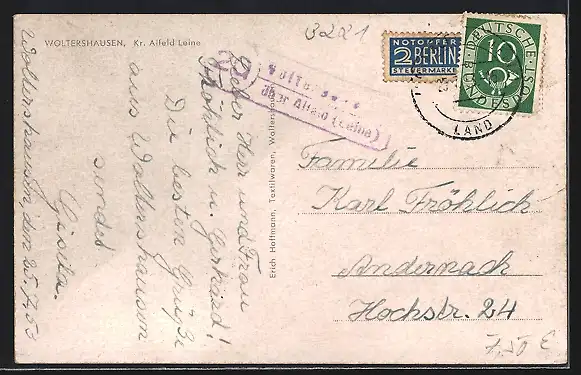 3221
WOLTERSHAUSEN, Kr. Alfeld Leine
NOTOPFER
2 BERLIN
STEUERMARKE
DEUTSCHE
BUNDESPOST
10
LAND
über Alfeld (Leine)
Lieber Herr und Frau
Fröhlich u. Gertrud!
Die besten Grüße
aus Woltershausen
sendet
Gisela.
Woltershausen den 25.7.53
Erich Hoffmann, Textilwaren, Woltershausen
Familie
Karl Fröhlich
Andernach
Hochstr. 24
7,50 E